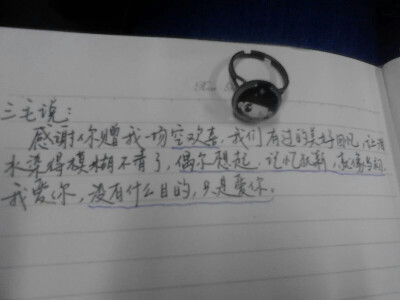 三毛说:
感谢你赠我一场空欢喜,我们有过的美好回忆,让泪
水染得模糊不清了,偶尔想起,记忆犹新,就像当初,
我爱你,没有什么目的,只是爱你。